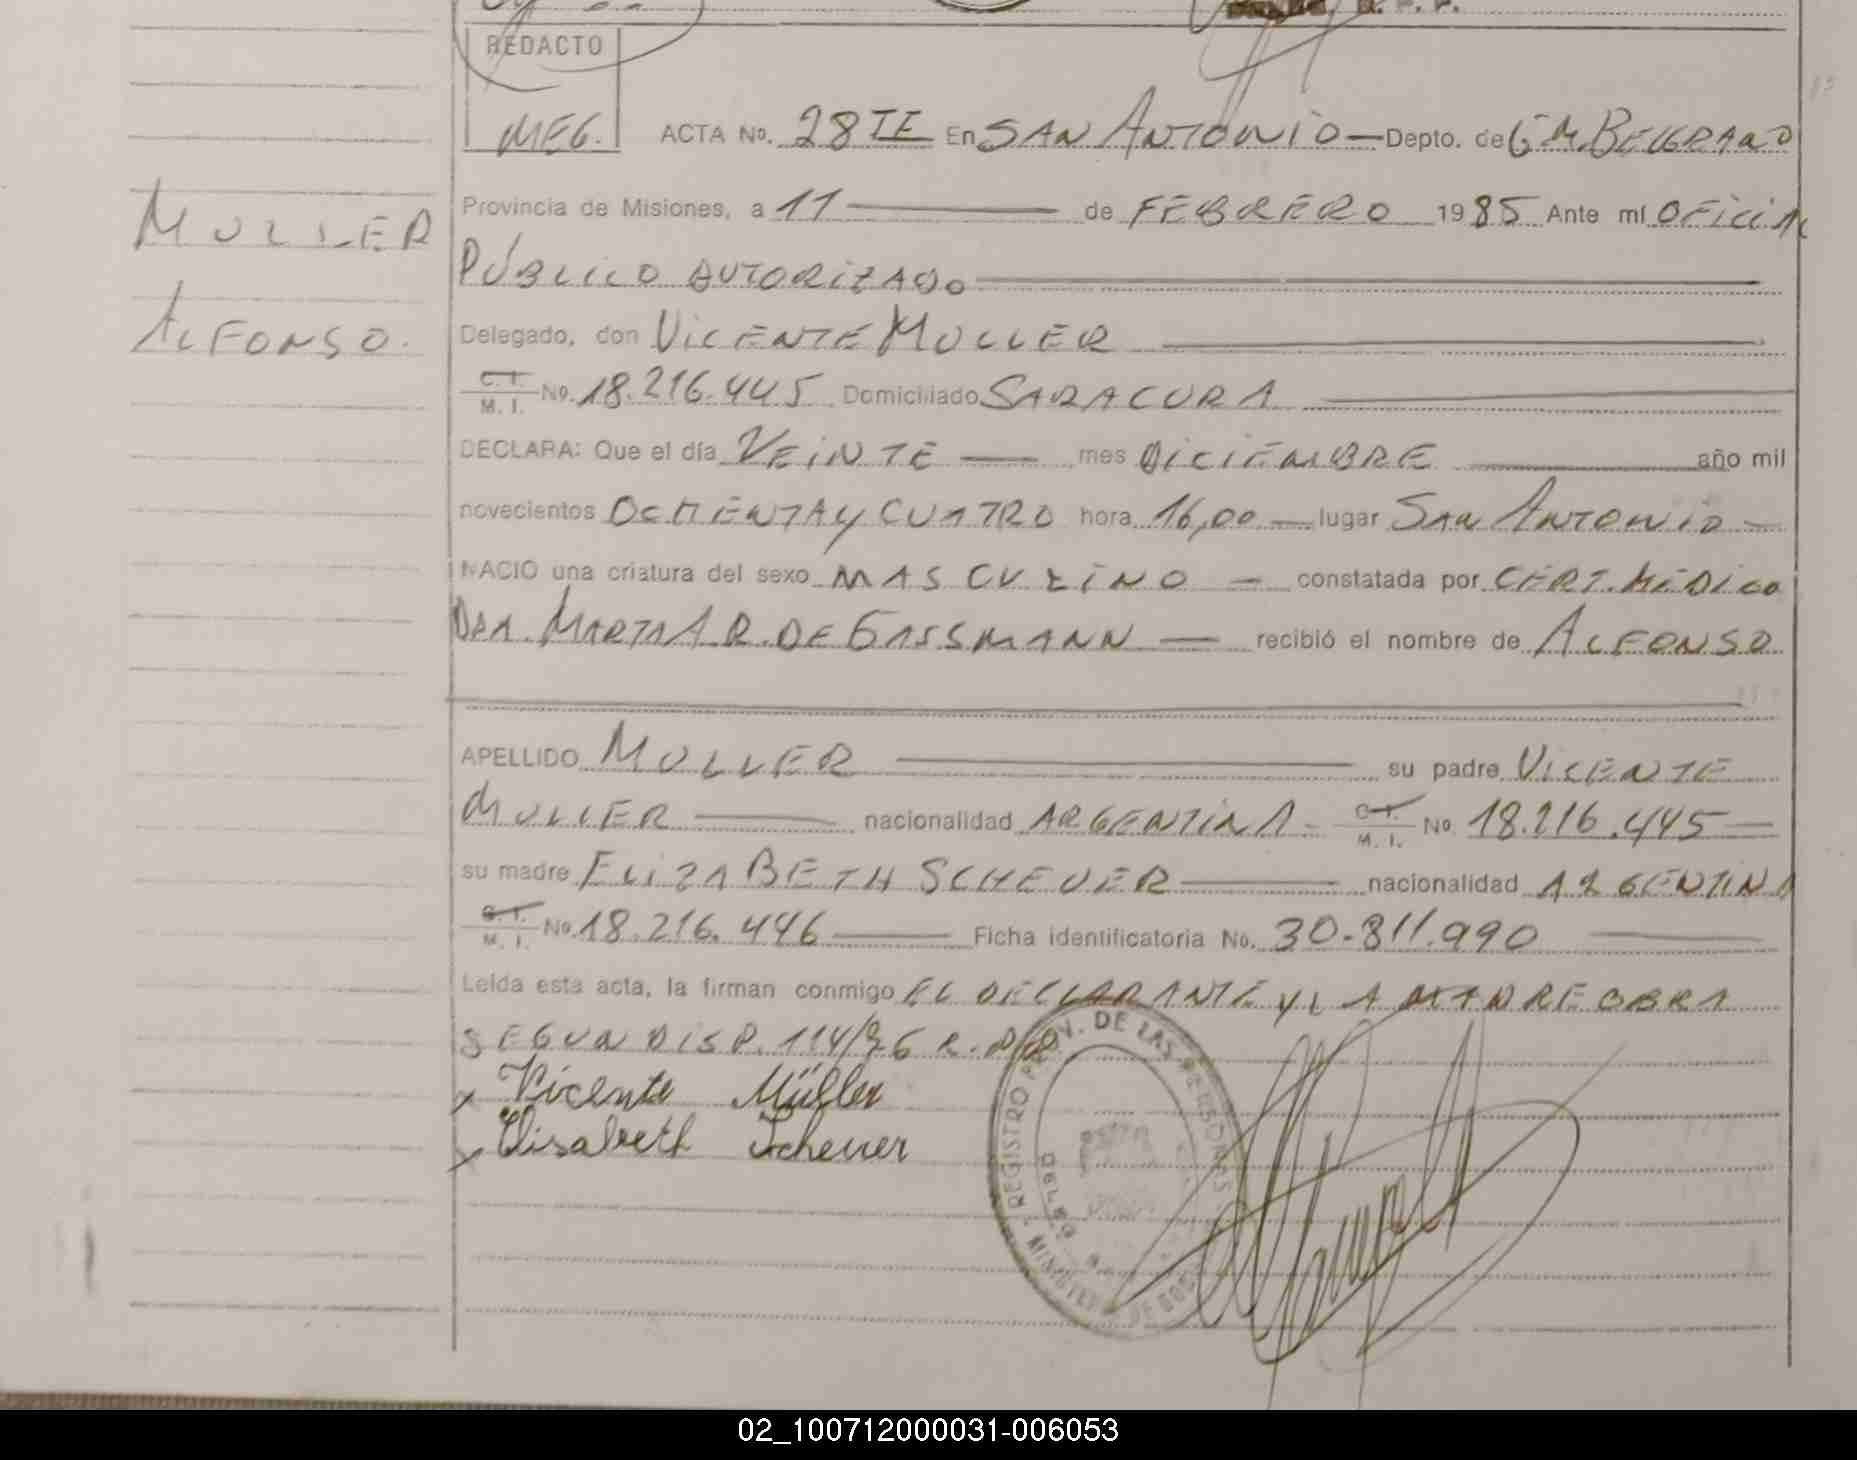 REDACTO
MEG.
ACTA No. 28 TE En SAN ANTONIO — Depto. de G M. BELGRANO
Provincia de Misiones, a 11 — de FEBRERO 1985 Ante mí OFICIAL
PÚBLICO AUTORIZADO
MULLER
ALFONSO.
Delegado, don VICENTE MULLER
C. I. M. I. No. 18.216.445 Domiciliado SARACURA
DECLARA: Que el día VEINTE — mes DICIEMBRE año mil
novecientos OCHENTA Y CUATRO hora 16,00 — lugar SAN ANTONIO —
NACIO una criatura del sexo MASCULINO — constatada por CERT. MÉDICO
DRA. MARTA A R. DE GASSMANN — recibió el nombre de ALFONSO
APELLIDO MULLER su padre VICENTE
MULLER — nacionalidad ARGENTINA - C. I. M. I. No. 18.216.445 —
su madre ELIZABETH SCHEUER — nacionalidad ARGENTINA
C. I. M. I. No. 18.216.446 — Ficha identificatoria No. 30-811.990
Leída esta acta, la firman conmigo EL DECLARANTE Y LA MADRE OBRA
SEGUN DISP. 114/76 R.
x Vicente Müller
x Elisabeth Scheuer
REGISTRO PROV. DE LAS PERSONAS
02_100712000031-006053